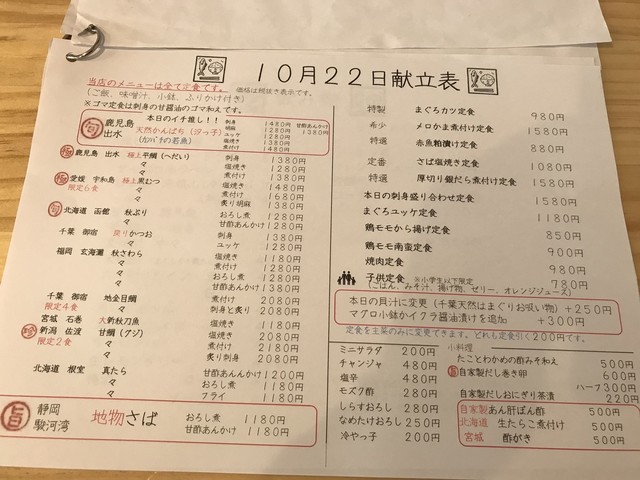 10月22日献立表
当店のメニューは全て定食です。
(ご飯、味噌汁、小鉢、ふりかけ付き)
価格は税抜き表示です。
※ゴマ定食は刺身の甘醤油のゴマ和えです。
旬 鹿児島 出水
本日のイチ推し!!
天然かんぱち(汐っ子)
(カンパチの若魚)
刺身 1480円
胡麻 1280円
ユッケ 1280円
塩焼き 1280円
甘酢あんかけ 1380円
極 鹿児島 出水 極上平鯛(へだい) 刺身 1380円
々 塩焼き 1280円
々 煮付け 1380円
極 愛媛 宇和島 極上黒むつ 塩焼き 1460円
限定6食 々 煮付け 1680円
々 炙り胡麻 1380円
旬 北海道 函館 秋ぶり おろし煮 1280円
々 甘酢あんかけ 1280円
千葉 御宿 戻りかつお 刺身 1380円
々 ユッケ 1280円
福岡 玄海灘 秋さわら 塩焼き 1180円
々 煮付け 1280円
々 おろし煮 1280円
々 甘酢あんかけ 1380円
千葉 御宿 地金目鯛 煮付け 2080円
限定4食 々 刺身と炙り 2080円
宮城 石巻 大新秋刀魚 塩焼き 1180円
珍 新潟 佐渡 甘鯛(グジ) 塩焼き 2080円
限定2食 々 煮付け 2180円
々 炙り刺身 2080円
北海道 根室 真たら 甘酢あんかけ 1200円
々 おろし煮 1180円
々 フライ 1180円
旨 静岡 駿河湾 地物さば おろし煮 1180円
甘酢あんかけ 1180円
特製 まぐろカツ定食 980円
希少 メロかま煮付け定食 1580円
特選 赤魚粕漬け定食 880円
定番 さば塩焼き定食 1080円
特選 厚切り銀だら煮付け定食 1580円
本日の刺身盛り合わせ定食 1580円
まぐろユッケ定食 1180円
鶏モモから揚げ定食 850円
鶏モモ南蛮定食 900円
焼肉定食 980円
子供定食 ※小学生以下限定 780円
(ごはん、みそ汁、揚げ物、ゼリー、オレンジジュース)
本日の貝汁に変更(千葉天然はまぐりお吸い物)+250円
マグロ小鉢かイクラ醤油漬けを追加 +300円
定食を主菜のみに変更できます。どれも定食引く200円です。
ミニサラダ 200円
チャンジャ 480円
塩辛 480円
モズク酢 280円
しらすおろし 280円
なめたけおろし 250円
冷やっ子 250円
小料理
たことわかめの酢みそ和え 500円
旨 自家製だし巻き卵 600円
ハーフ300円
自家製だしおにぎり茶漬 220円
自家製あん肝ぽん酢 500円
北海道 生たらこ煮付け 500円
宮城 酢がき 500円